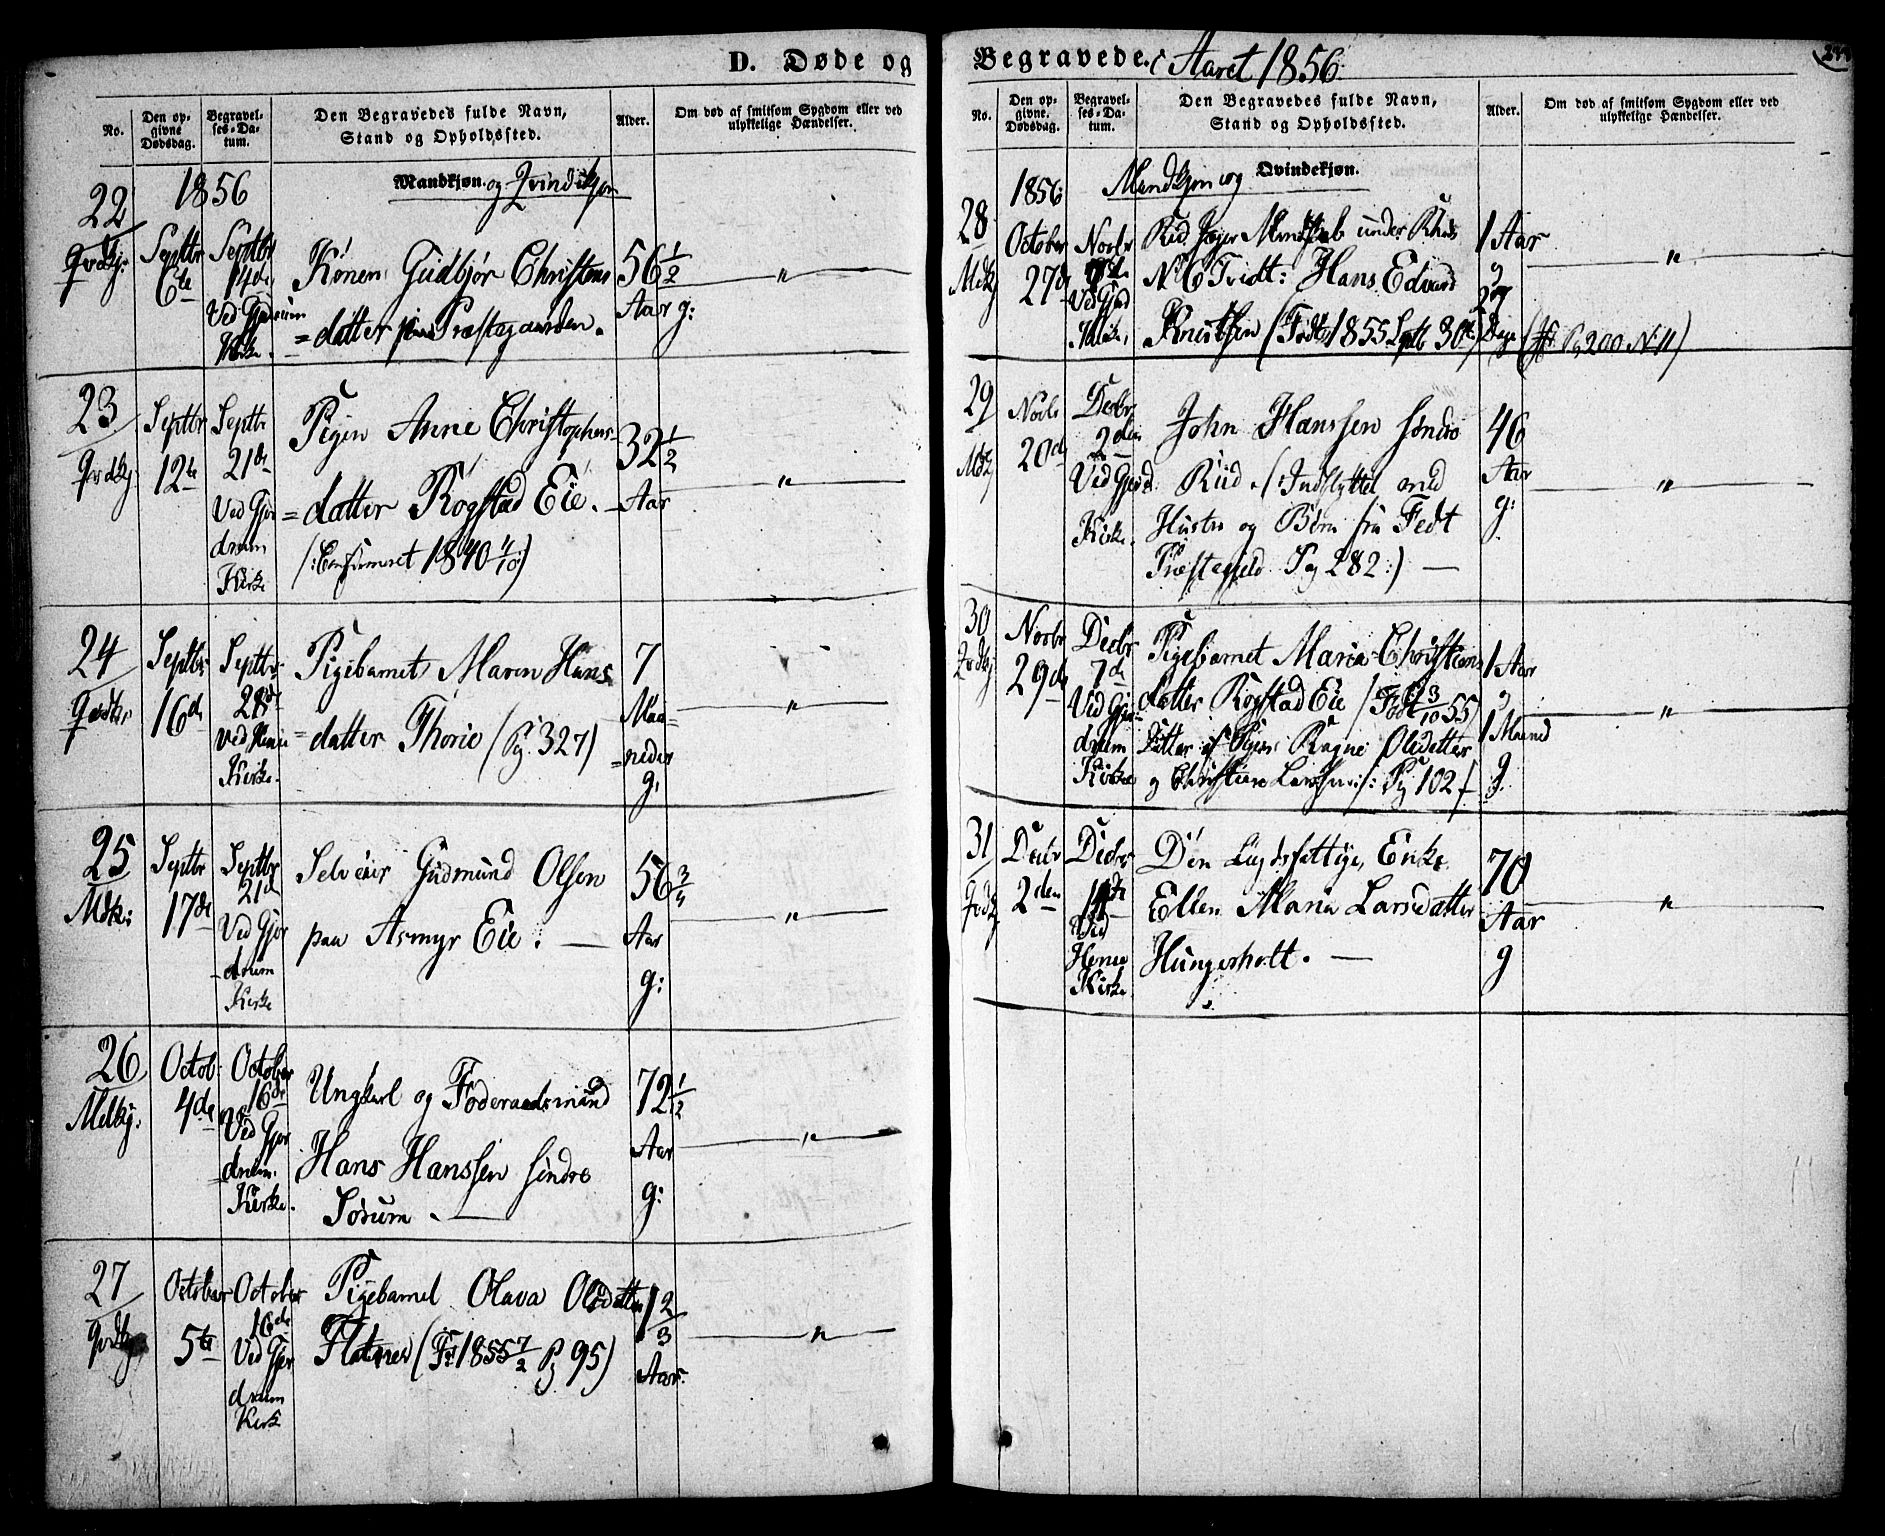 D. Døde og
No.
Den opgivne Dødsdag.
Begravelses-Datum.
Den Begravedes fulde Navn,
Stand og Opholdssted.
Alder.
Om død af smitsom Sygdom eller ved
ulykkelige Hændelser.
1856
Mandkjøn og Qvindekjøn
22
Qvdkj:
Septbr
6te
Septbr
14de
Ved Gjerdrum
Kirke.
Konen Gudbjør Christens
=datter Præstegaarden.
56 1/2
Aar g:
"
23
Qvdkj.
Septbr
12te
Septbr
21de
Ved Gjer
drum
Kirke
Pigen Anne Christophers
=datter Rogstad Eie.
(:Confirmeret 1840 4/10:)
32 1/2
Aar
"
24
Qvdkj
Septbr
16de
Septbr
28de
Ved Heni
Kirke.
Pigebarnet Maren Hans
=datter Thorie (Pg. 327)
7
Maa=
=neder
g.
"
25
Mdkj:
Septbr
17de
Septbr
21de
Ved Gjer
=drum
Kirke
Selveier Gudmund Olsen
paa Asmyr Eie.
56 3/4
Aar
g:
"
26
Mdkj:
Octob:
4de
October
16de
Ved Gjer
=drum
Kirke.
Ungkarl og Føderaadsmand
Hans Hanssen søndre
Sørum.
72 1/2
Aar
g:
"
27
Qvdkj
October
5te
October
16de
Ved Gjer
drum
Kirk
Pigebarnet Olava Olsdatter
Flatner (Ft 1855 7/2 Pg 95)
1 2/3
Aar.
"
Begravede. i Aaret 1856
No.
Den opgivne Dødsdag.
Begravelses-Datum.
Den Begravedes fulde Navn,
Stand og Opholdssted.
Alder.
Om død af smitsom Sygdom eller ved
ulykkelige Hændelser.
1856
Mandkjøn og Qvindekjøn.
28
Mdkj
October
27de
Novbr
Ved Gjerd
Kirke,
Rid. Jæger under
No 6 Tvidt: Hans Edvard
Knudsen (Født 1855 Septb 30te)
1 Aar
27
Dage
(Pg 200 N 11)
"
29
Mdkj
Novbr
20de
Decbr
2den
Ved Gjerd.
Kirke.
John Hanssen søndre
Ruud. (Indflyttet med
Hustru og Børn fra Fedt
Præstegjeld Pag 282:)
46
Aar
g:
"
30
Qvdkj
Novbr
29de
Decbr
7de
Ved Gjer
drum
Kirke
Pigebarnet Maria Christians
datter Rogstad Eie (Født 23/10 55)
Datter af Pigen Ragne Olsdatter
og Christian Larssen: Pg 102
1 Aar
1 Maaned
g.
"
31
Qvdkj
Decbr
2den
Decbr
14de
Ved
Henie
Kirke
Den Lægdsfattige, Enke
Ellen Maria Larsdatter
Hungerholt.
70
Aar
g
"